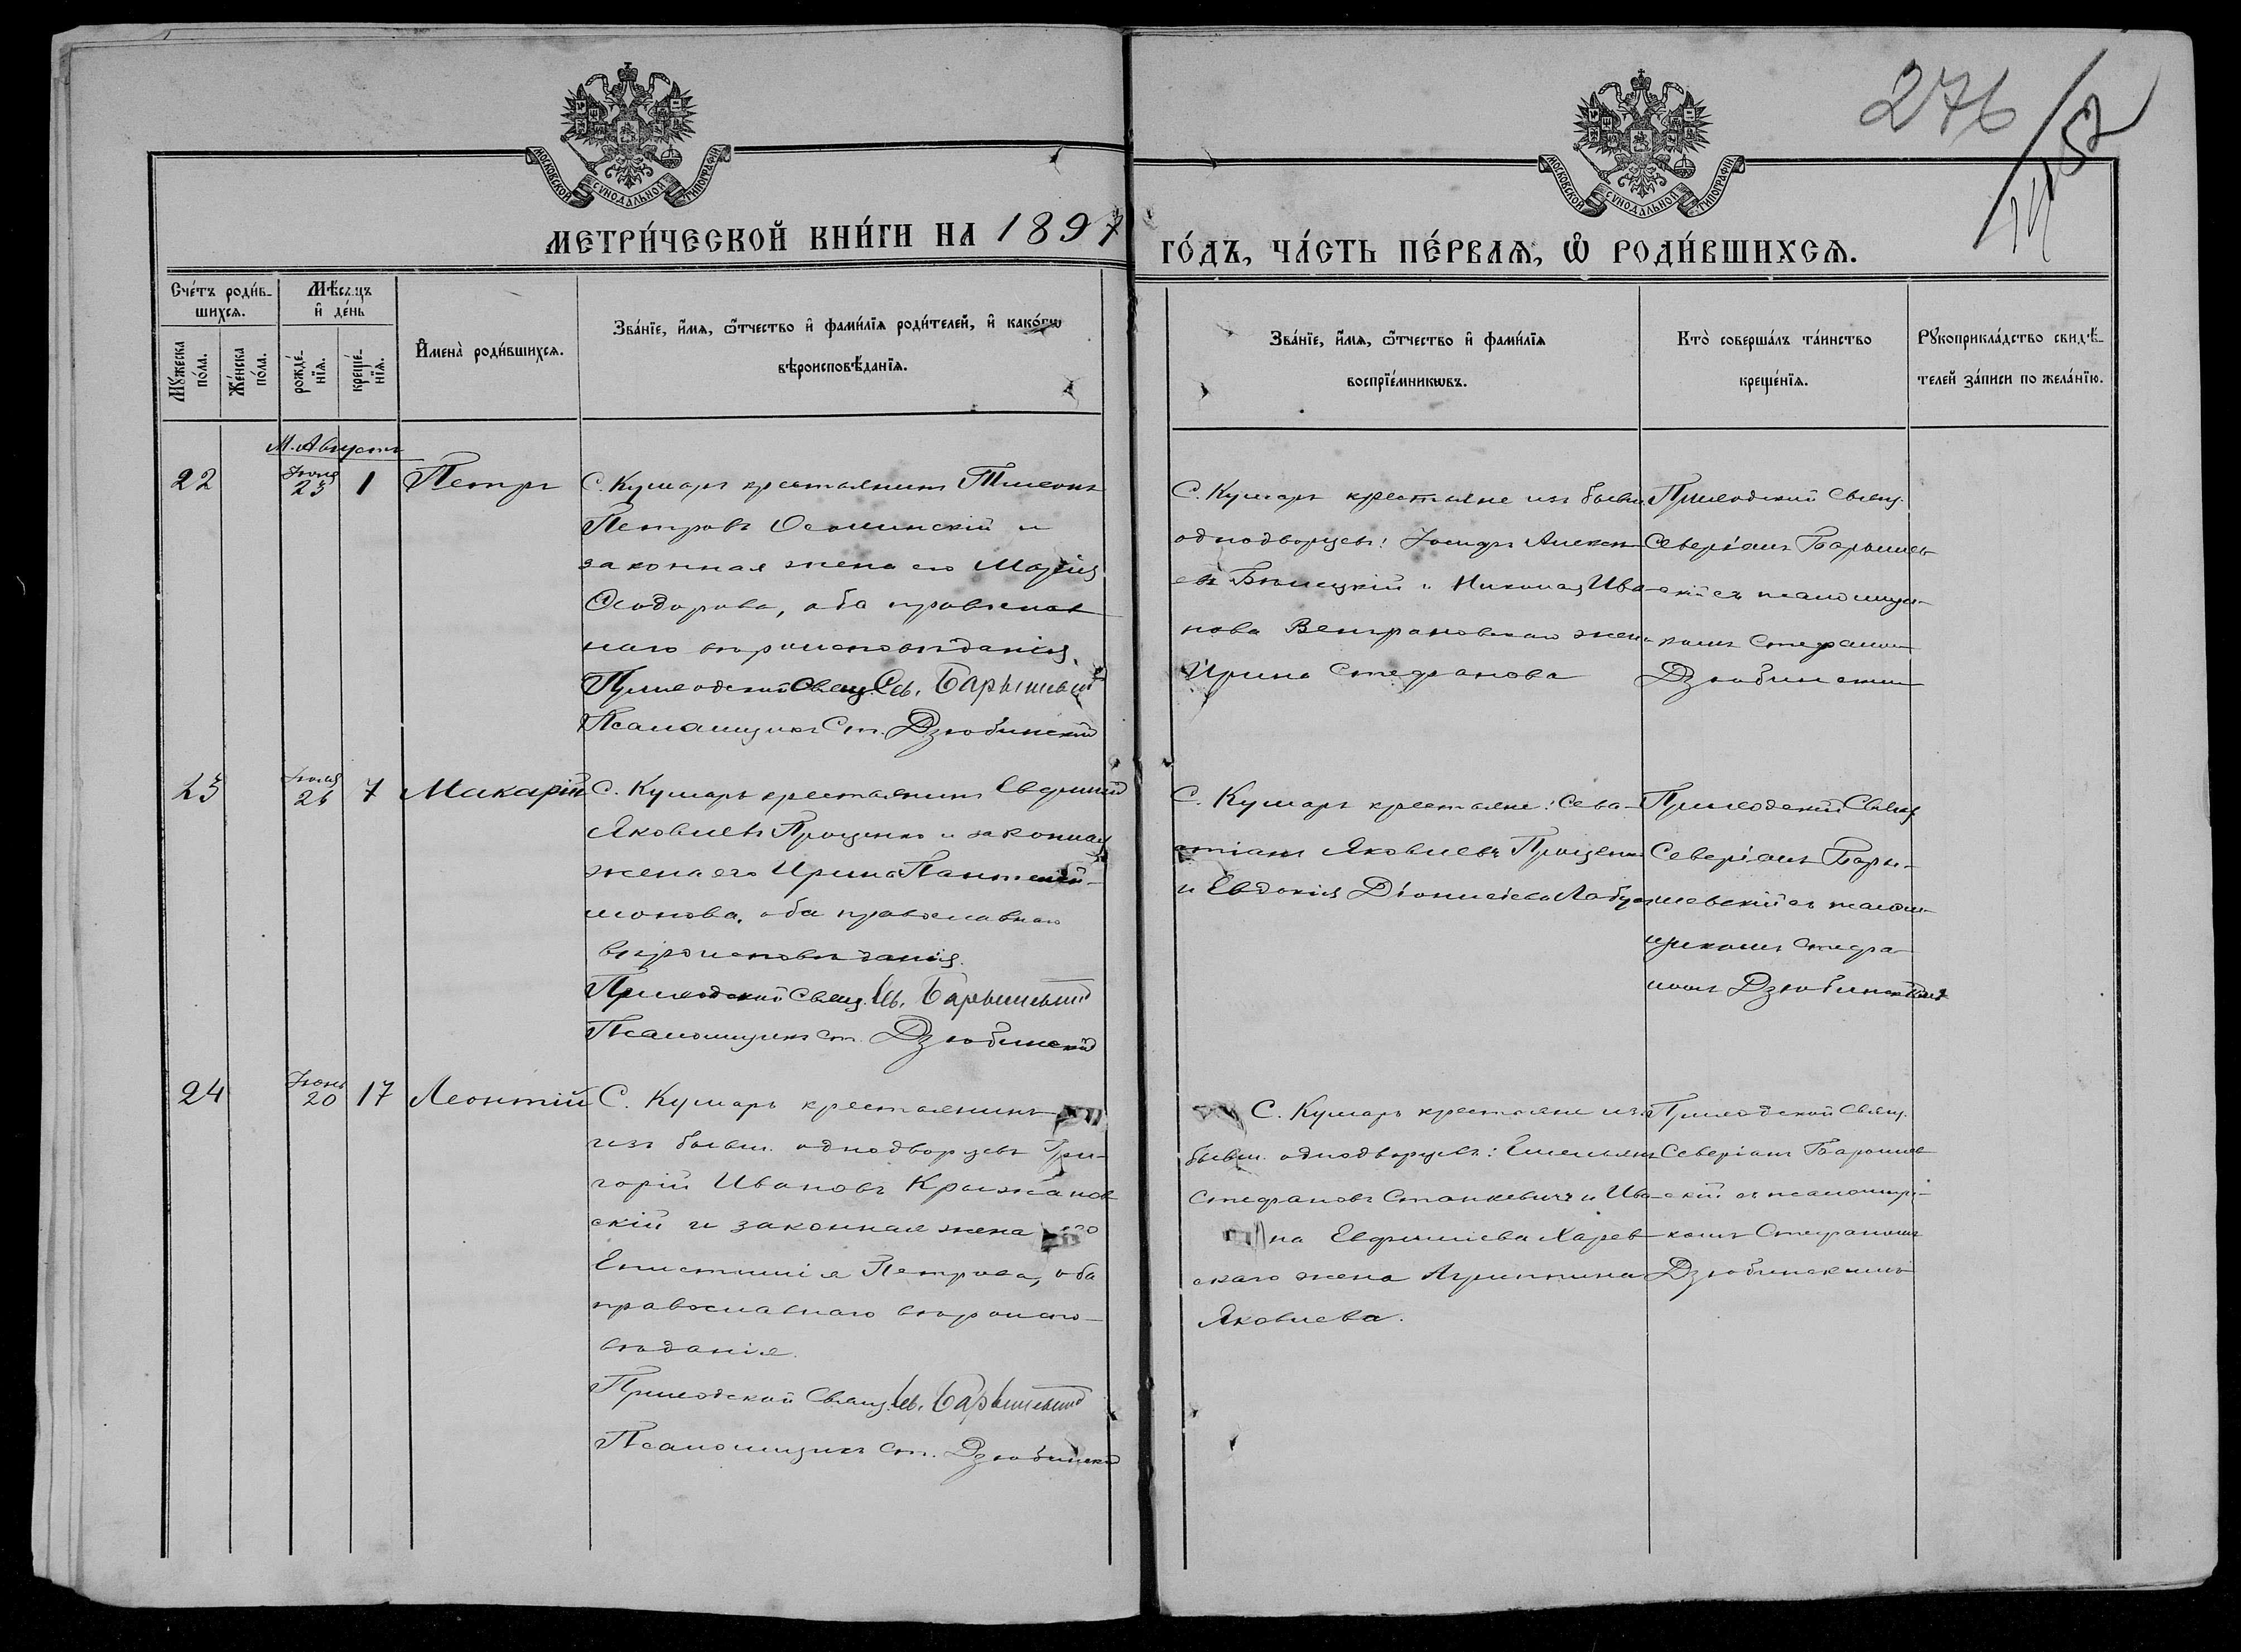 276
МОСКОВСКОЙ СѴНОДАЛЬНОЙ ТИПОГРАФІИ
МОСКОВСКОЙ СѴНОДАЛЬНОЙ ТИПОГРАФІИ
МЕТРИ́ЧЕСКОЙ КНИ́ГИ НА 1897
ГО́ДЪ, ЧА́СТЬ ПЕ́РВАѦ, Ѡ҆ РОДИ́ВШИХСѦ.
Сче́тъ роди́в-
шихсѧ.
Мꙋ́жеска по́ла.
Же́нска по́ла.
Мѣ́сѧцъ
и҆ де́нь
рожде́-
нїѧ.
креще́-
нїѧ.
И҆мена̀ роди́вшихсѧ.
Зва́нїе, и҆́мѧ, ѻ҆́тчество и҆ фами́лїѧ роди́телей, и҆ како́гѡ
вѣроисповѣ́данїѧ.
Зва́нїе, и҆́мѧ, ѻ҆́тчество и҆ фами́лїѧ
воспрїе́мникѡвъ.
Кто̀ соверша́лъ та́инство
креще́нїѧ.
Рꙋкоприкла́дство свидѣ́-
телей за́писи по жела́нїю.
М. Августъ
22
Іюля
23
1
Петръ
С. Кумаръ крестьянинъ
Петровъ Осолинскій и
законная жена его Марія
Ѳеодорова, оба православ
наго вѣроисповѣданія.
Приходскій Свящ. Св. Барышевскій
Псаломщикъ Ст. Дзюбинскій
С. Кумаръ крестьяне изъ бывш.
однодворцевъ: Іосифъ Алексѣ
евъ и Николая Ива
нова Венграновскаго жена
Ирина Стефанова
Приходскій Свящ.
Северіанъ Барышев
скій съ псаломщи-
комъ Стефаномъ
Дзюбинскимъ
23
Іюля
26
7
Макарій
С. Кумаръ крестьянинъ Евфимій
Яковлевъ Проценко и законная
жена его Ирина Пантелей-
монова, оба православнаго
вѣроисповѣданія.
Приходскій Свящ. Св. Барышевскій
Псаломщикъ Ст. Дзюбинскій
С. Кумаръ крестьяне: Сева-
стіанъ Яковлевъ Проценко
и Евдокія Діонисіева
Приходскій Свящ.
Северіанъ Бары-
шевскій съ псалом-
щикомъ Стефа-
номъ Дзюбинскимъ
24
Іюнь
20
17
Леонтій
С. Кумаръ крестьянинъ
изъ бывш. однодворцевъ Гри-
горій Ивановъ Крыжанов
скій и законная жена его
Епистимія Петрова, оба
православнаго вѣроиспо-
вѣданія.
Приходской Свящ. Св. Барышевскій
Псаломщикъ Ст. Дзюбинскій
С. Кумаръ крестьяне изъ
бывш. однодворцевъ: Емельянъ
Стефановъ Станкевичъ и Ива-
на Евфиміева Харев
скаго жена Агриппина
Яковлева.
Приходской Свящ.
Северіанъ Барышев
скій съ псаломщи-
комъ Стефаномъ
Дзюбинскимъ